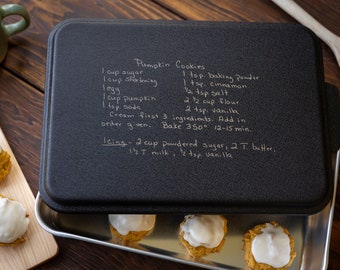 Pumpkin Cookies
1 cup sugar
1 cup shortening
1 egg
1 cup pumpkin
1 tsp. soda
1 tsp. baking powder
1 tsp. cinnamon
½ tsp salt
2 ½ cup flour
2 tsp. vanilla
Cream first 3 ingredients. Add in
order given. Bake 350° 12-15 min.
Icing - 2 cup powdered sugar, 2 T. butter,
1½ T milk, ½ tsp vanilla